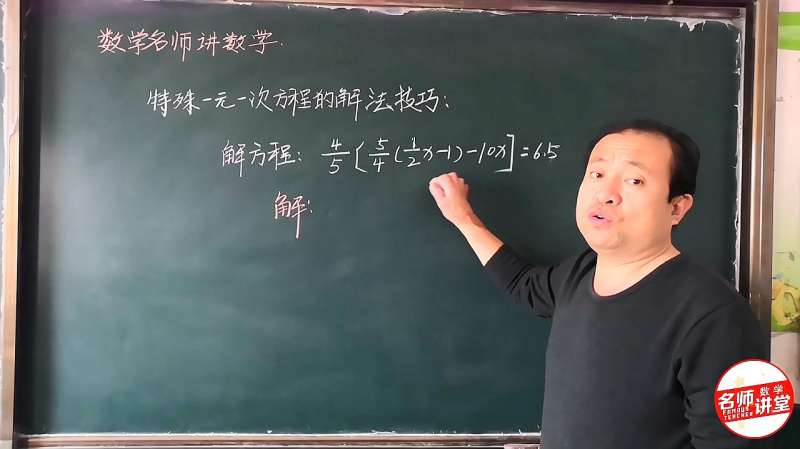 数学名师讲数学.
特殊一元一次方程的解法技巧:
解方程: 4/5[5/4(1/2x-1)-10x]=6.5
解:
名师
数学
讲堂
FAMOUS
TEACHER